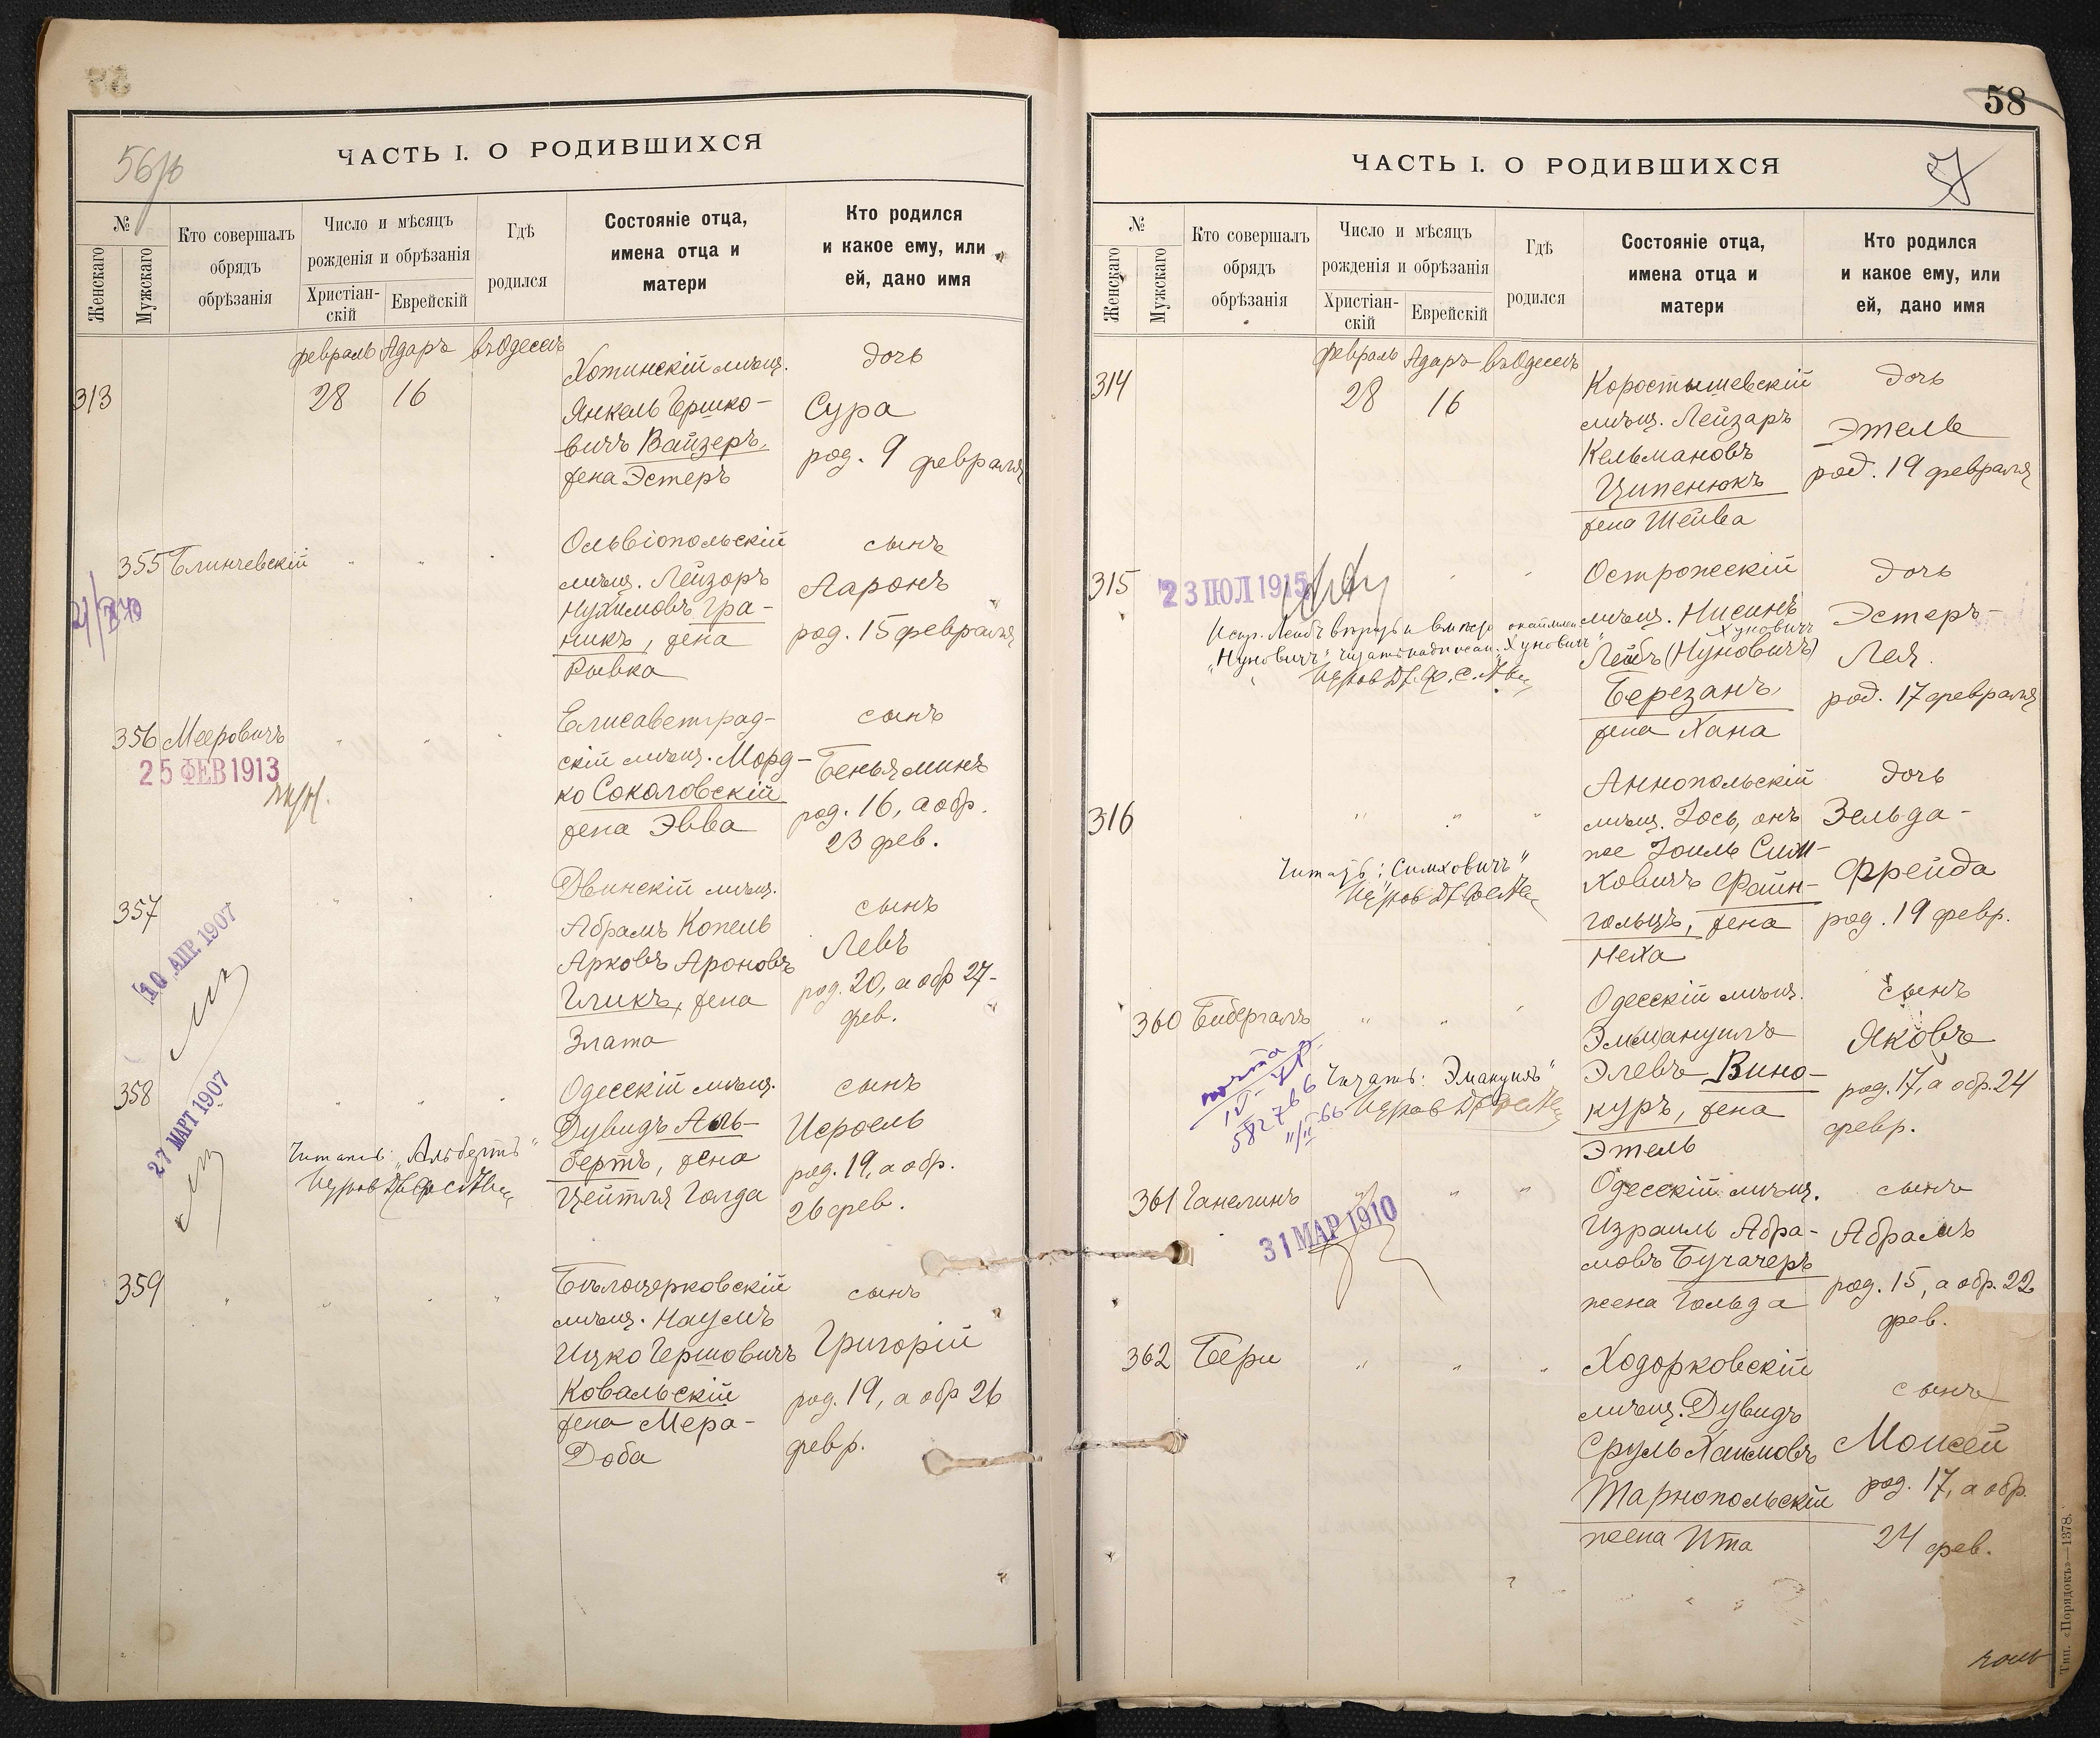 ЧАСТЬ I. О РОДИВШИХСЯ
№
Женскаго
Мужскаго
Кто совершалъ
обрядъ
обрѣзанія
Число и мѣсяцъ
рожденія и обрѣзанія
Христіан-
скій
Еврейскій
Гдѣ
родился
Состояніе отца,
имена отца и
матери
Кто родился
и какое ему, или
ей, дано имя
февраль Адаръ въ Одессѣ
313
28 16
Хотинскій мѣщ.
Янкель Гершко-
вичъ Вайзеръ,
жена Эстеръ
дочь
Сура
род. 9 февраля
355 Блинчевскій
Ольвіопольскій
мѣщ. Лейзоръ
Нухимовъ Гра-
никъ, жена
Рывка
сынъ
Ааронъ
род. 15 февраля
356 Мееровичъ
25 ФЕВ 1913
Елисаветград-
скій мѣщ. Морд-
ко Соколовскій
жена Эвва
сынъ
Беньяминъ
род. 16, а обр.
23 фев.
357
10 АПР. 1907
Двинскій мѣщ.
Абрамъ Копель
Арковъ Ароновъ
Гликъ, жена
Злата
сынъ
Левъ
род. 20, а обр 27-
фев.
358
27 МАРТ 1907
Читать: „Альбертъ“
Одесскій мѣщ.
Дувидъ Аль-
бертъ, жена
Цейтля Голда
сынъ
Исроель
род. 19, а обр.
26 фев.
359
Бѣлоцерковскій
мѣщ. Наумъ
Ицко Гершовичъ
Ковальскій
жена Мера-
Доба
сынъ
Григорій
род. 19, а обр 26
февр.
58
57
ЧАСТЬ I. О РОДИВШИХСЯ
№
Женскаго
Мужскаго
Кто совершалъ
обрядъ
обрѣзанія
Число и мѣсяцъ
рожденія и обрѣзанія
Христіан-
скій
Еврейскій
Гдѣ
родился
Состояніе отца,
имена отца и
матери
Кто родился
и какое ему, или
ей, дано имя
февраль Адаръ въ Одессѣ
314
28 16
Коростышевскій
мѣщ. Лейзаръ
Кельмановъ
Ципенюкъ
жена Шейва
дочь
Этель
род. 19 февраля
315
23 ІЮЛ 1915
Острожскій
мѣщ. Нисинъ
Хуновичъ
Лейбъ (Нуновичъ)
Березанъ,
жена Хана
дочь
Эстеръ-
Лея.
род. 17 февраля
316
Читать: „Симховичъ“
Аннопольскій
мѣщ. Іось, онъ
же Іоиль Сим-
ховичъ Файн-
гольцъ, жена
Неха
дочь
Зельда-
Фрейда
род. 19 февр.
360 Бибергалъ
Читать: „Эмануилъ“
Одесскій мѣщ.
Эммануилъ
Элевъ Вино-
куръ, жена
Этель
сынъ
Яковъ
род. 17, а обр. 24
февр.
361 Ганелинъ
31 МАР 1910
Одесскій мѣщ.
Израиль Абра-
мовъ Бучачеръ
жена Гольда
сынъ
Абрамъ
род. 15, а обр. 22
фев.
362 Бери
Ходорковскій
мѣщ. Дувидъ
Сруль Хаимовъ
Тарнопольскій
жена Ита
сынъ
Моисей
род. 17, а обр.
24 фев.
Тип. «Порядокъ»—1378.